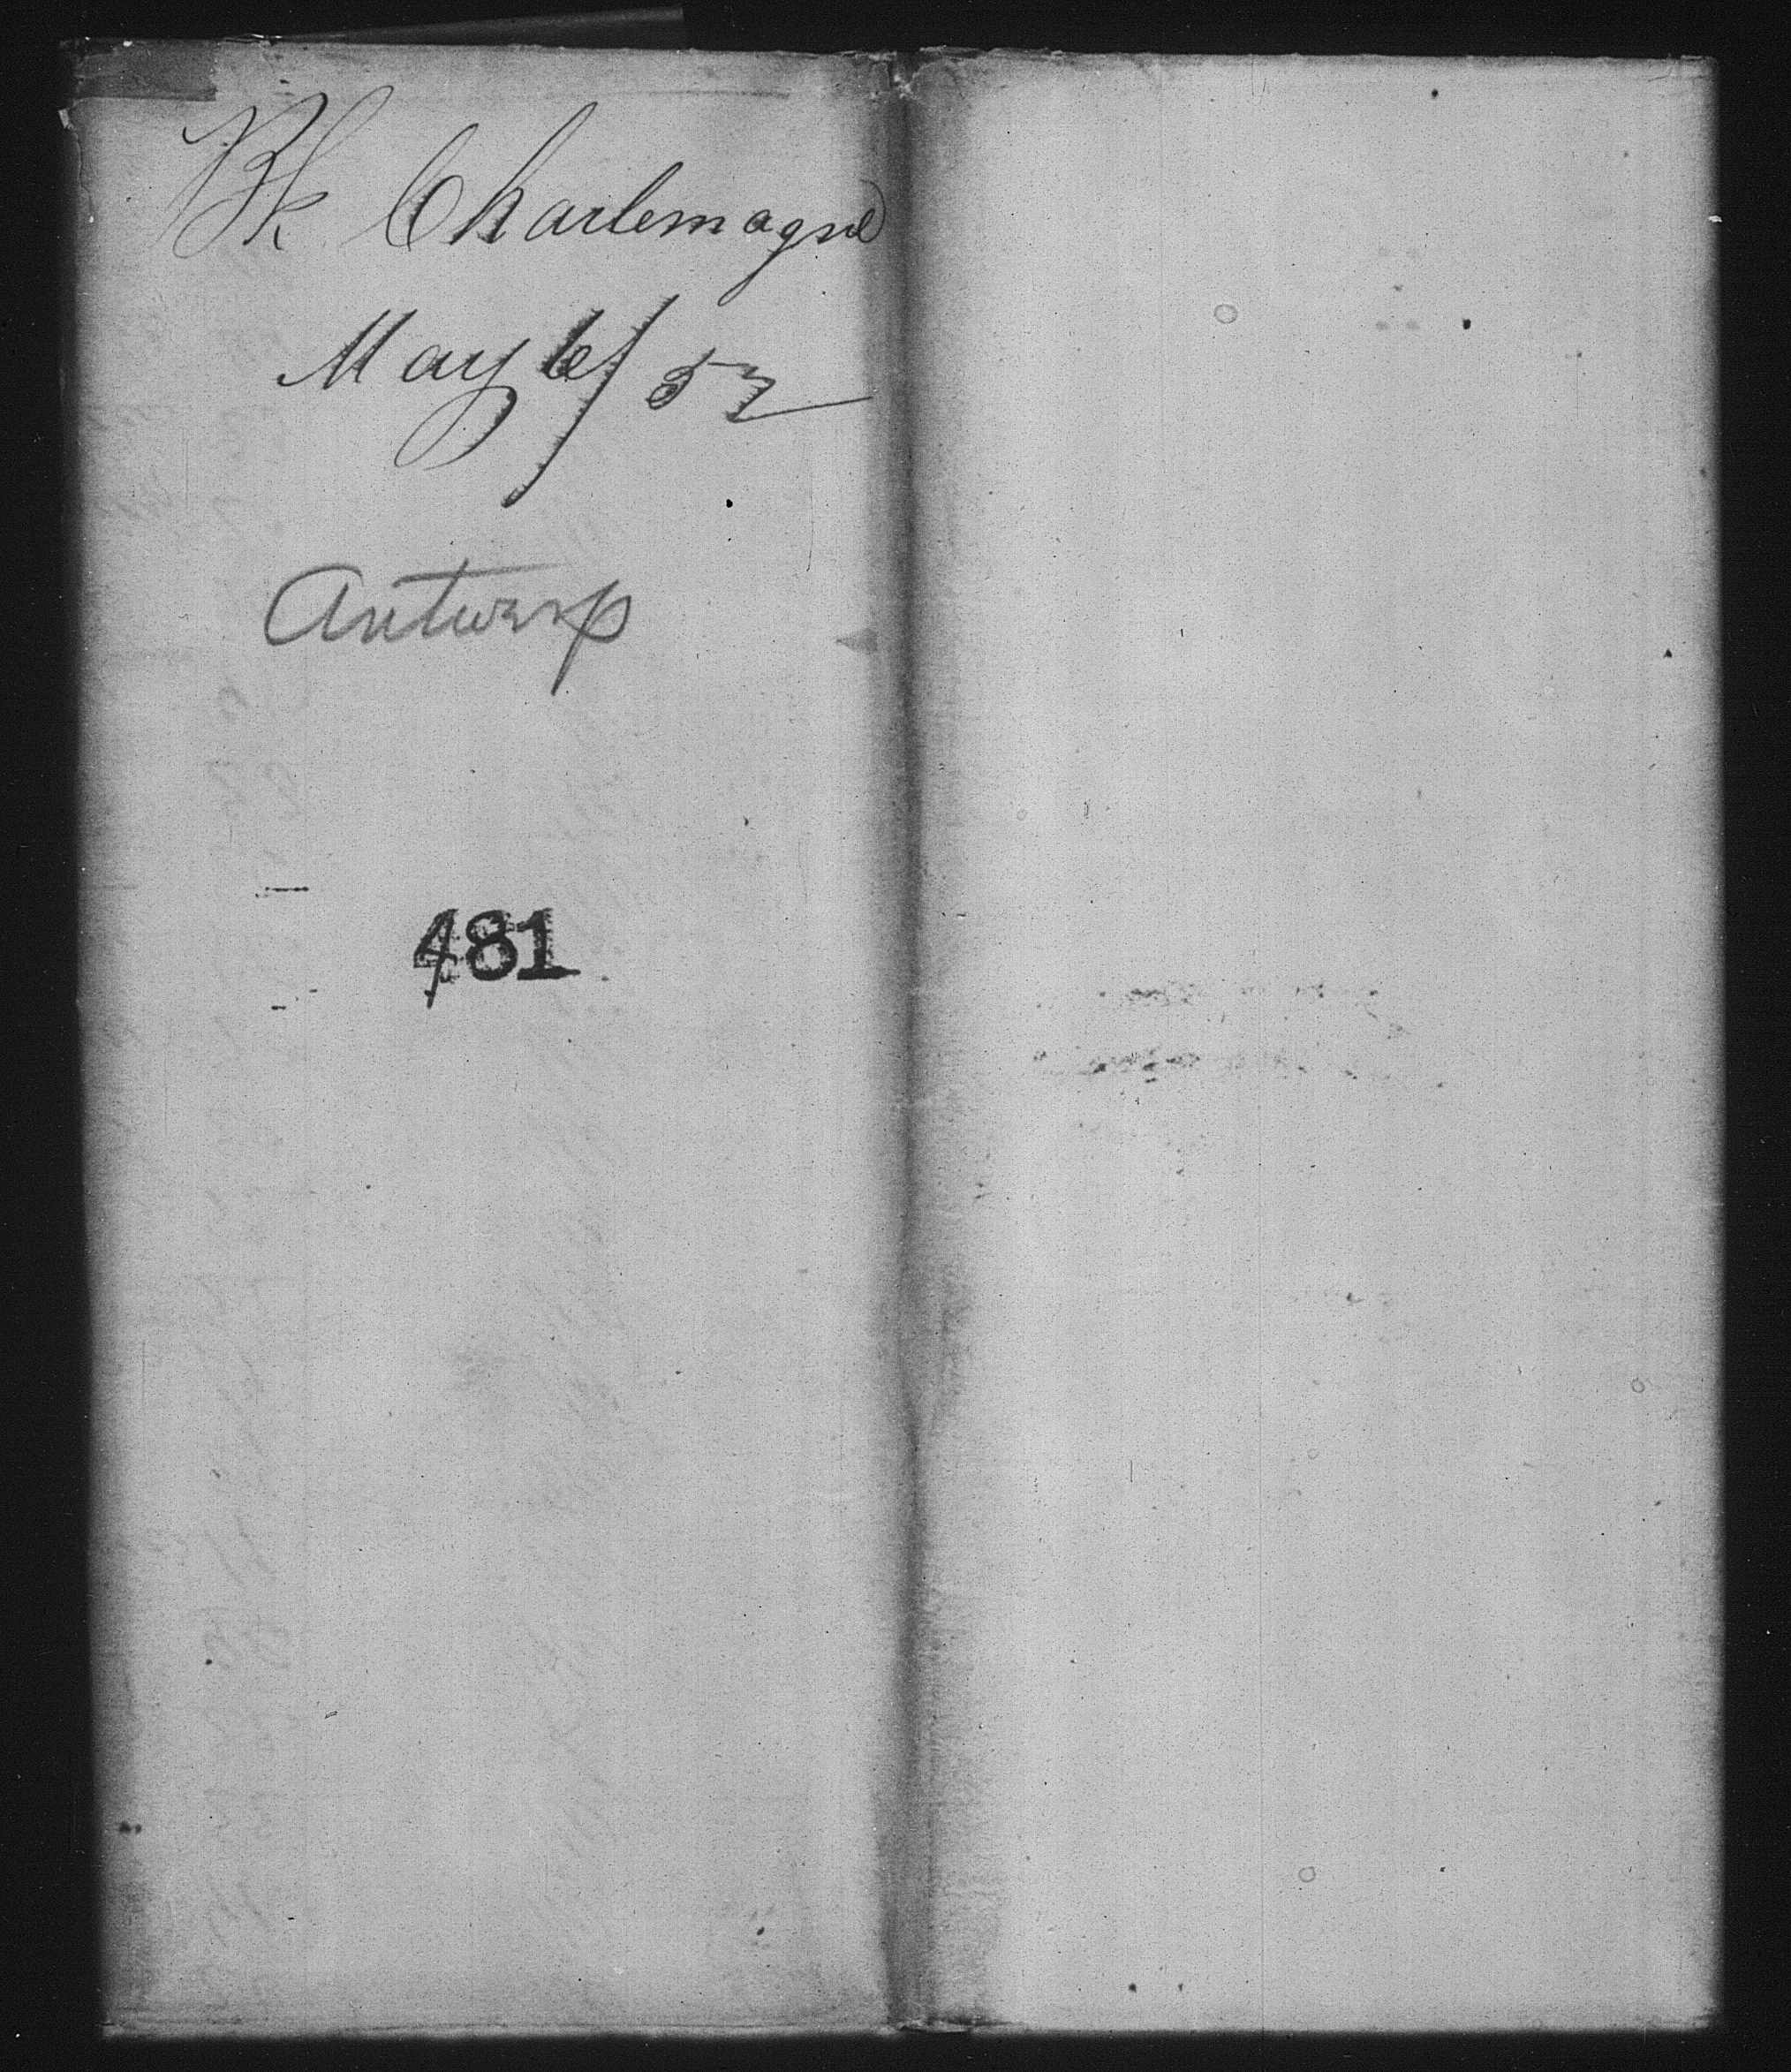 Bk Charlemagne
May 6/52
Antwerp
481